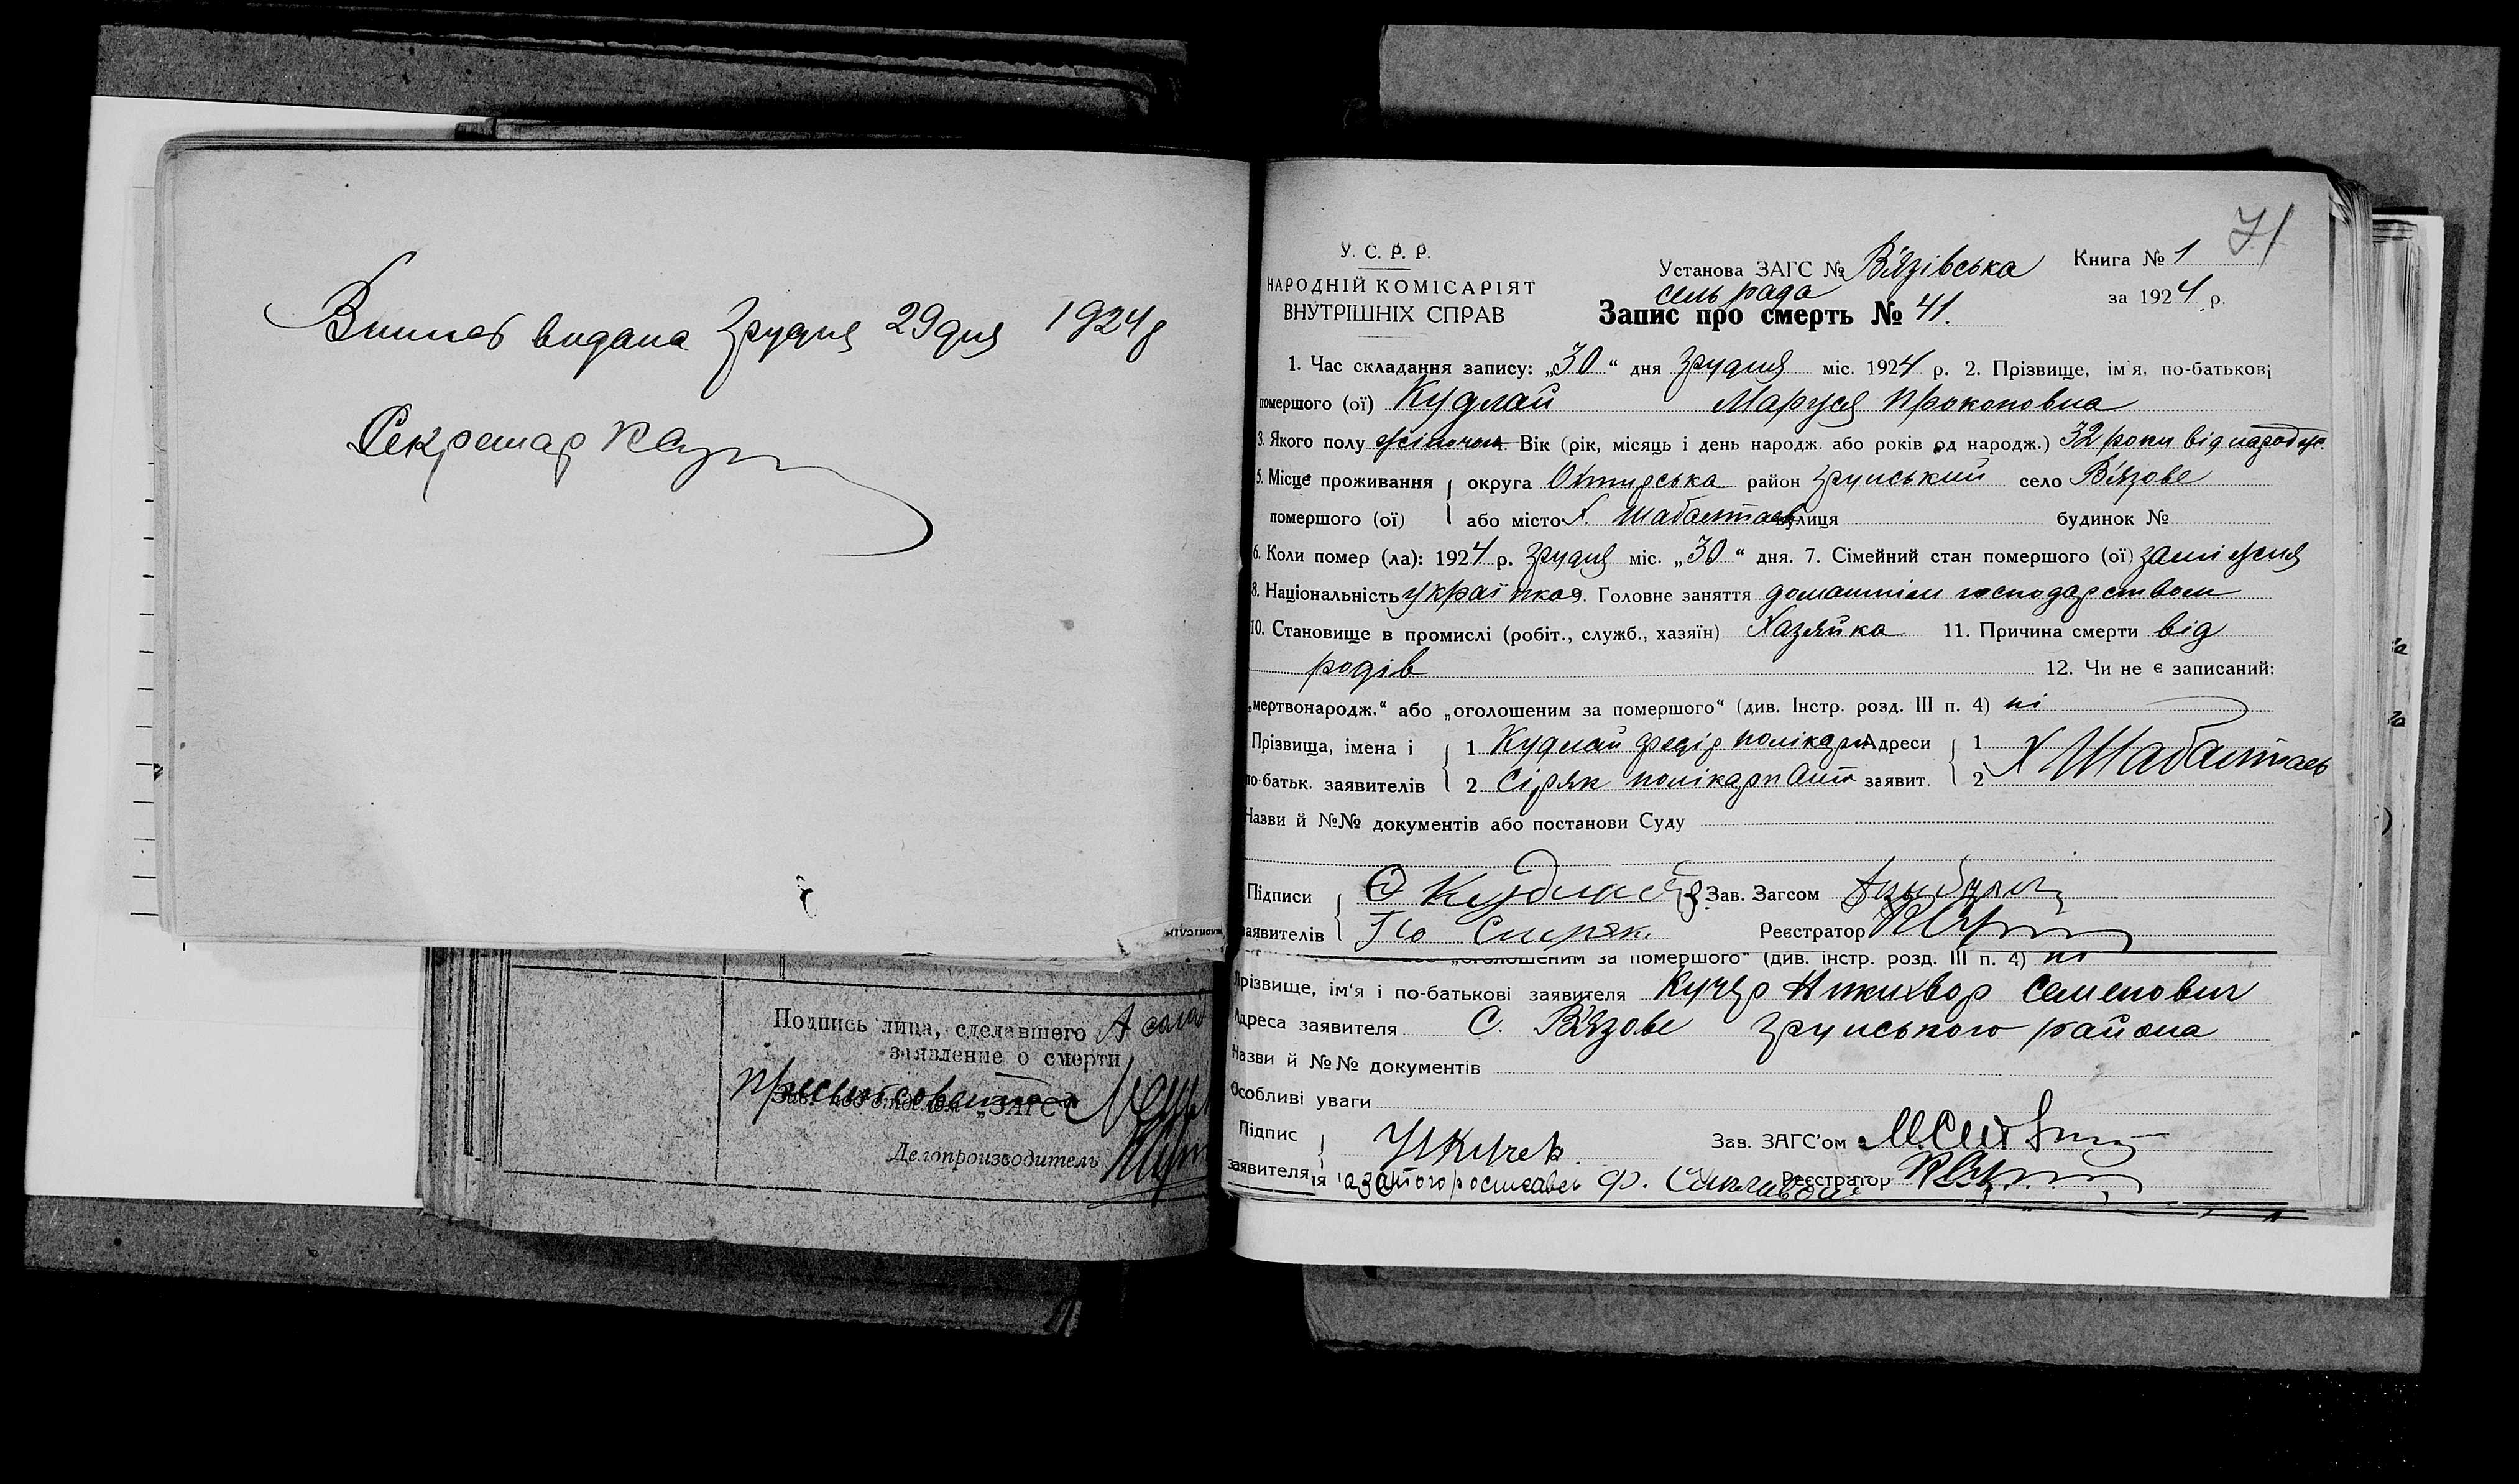 Випись видана грудня 29 дня 1924 р
Секретар
71
У. С. Р. Р.
НАРОДНІЙ КОМІСАРІЯТ
ВНУТРІШНІХ СПРАВ
Установа ЗАГС № В'язівська
сельрада
Книга № 1
за 1924 р.
Запис про смерть № 41.
1. Час складання запису: „30“ дня грудня міс. 1924 р. 2. Прізвище, ім'я, по-батькові
помершого (ої) Кудлай Маруся Прокоповна
3. Якого полу жіночи 4. Вік (рік, місяць і день народж. або років од народж.) 32 роки від народж.
5. Місце проживання округа Охтирська район Грунський село В'язове
помершого (ої) або місто Х. вулиця будинок №
6. Коли помер (ла): 1924 р. грудня міс. „30“ дня. 7. Сімейний стан помершого (ої) заміжня
8. Національність українка 9. Головне заняття домашнім господарством
10. Становище в промислі (робіт., служб., хазяїн) Хазяйка 11. Причина смерти від
родів 12. Чи не є записаний:
„мертвонародж.“ або „оголошеним за помершого“ (див. Інстр. розд. III п. 4) ні
Прізвища, імена і 1 Кудлай Федір Полікарп Адреси 1
по-батьк. заявителів 2 Сіряк Полікарп заявит. 2 Х
Назви й №№ документів або постанови Суду
Підписи Кудлай Зав. Загсом
заявителів Сиряк. Реєстратор
„оголошеним за помершого“ (див. інстр. розд. III п. 4) ні
Прізвище, ім'я і по-батькові заявителя Кучер Никихвор Семенович
Адреса заявителя С. В'язове Грунського района
Назви й №№ документів
Особливі уваги
Підпис Кучер Зав. ЗАГС'ом
заявителя Реєстратор
Подпись лица, сделавшего
заявление о смерти
„ЗАГС“
Делопроизводитель